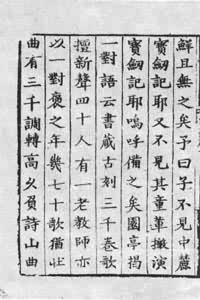 鮮且無之矣予曰子不見中麓
寳劒記耶又不見其童輩搬演
寳劒記耶嗚呼備之矣園亭揭
一對語云書藏古刻三千卷歌
擅新聲四十人有一老教師亦
以一對褒之年幾七十歌猶壯
曲有三千調轉高久負詩山曲